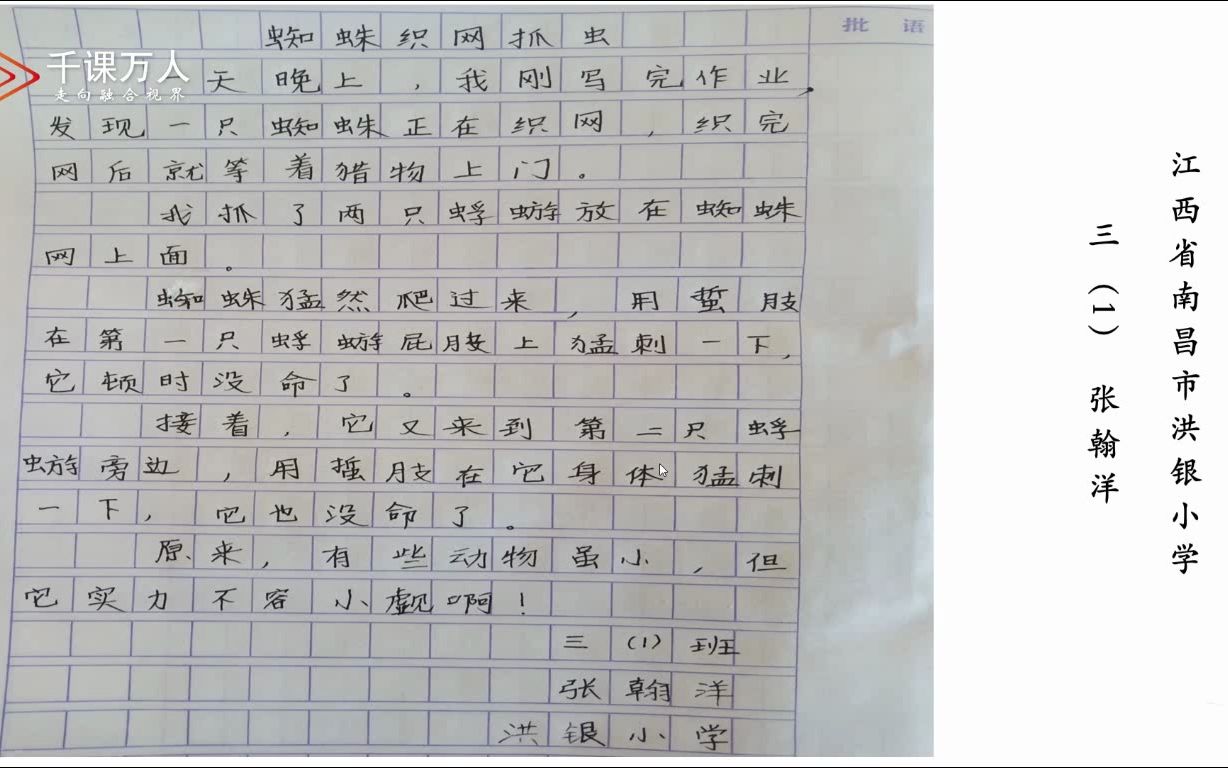 蜘蛛织网抓虫
批语
千课万人
走向融合视界
天晚上,我刚写完作业,
发现一只蜘蛛正在织网,织完
网后就等着猎物上门。
我抓了两只蜉蝣放在蜘蛛
网上面。
蜘蛛猛然爬过来,用蜇肢
在第一只蜉蝣屁股上猛刺一下,
它顿时没命了。
接着,它又来到第二只蜉
蝣旁边,用蜇肢在它身体猛刺
一下,它也没命了。
原来,有些动物虽小,但
它实力不容小觑啊!
三(1)班
张翰洋
洪银小学
江西省南昌市洪银小学
三(1) 张翰洋